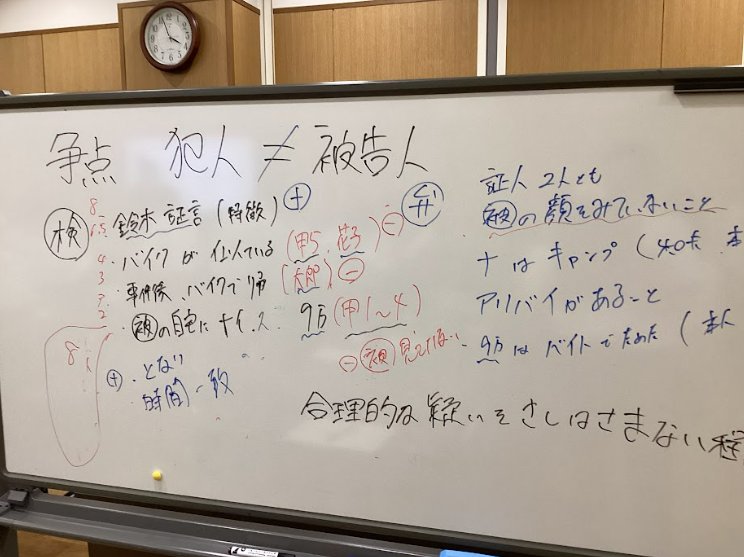 争点 犯人 ≠ 被告人
検
鈴木 証言 (特徴) +
・バイクが似ている (甲5、花子) -
・事件後、バイクで帰 (太郎) -
・被の自宅にナイフ 9万 (甲1~4)
- 被 見えてない
8
6.5
4
3
2
8
+ ・となり
時間 一致
弁
証人 2人とも
被の顔をみていないこと
ナはキャンプ (
アリバイがあること
9万はバイトでためた (本人
合理的な疑いをさしはさまない程